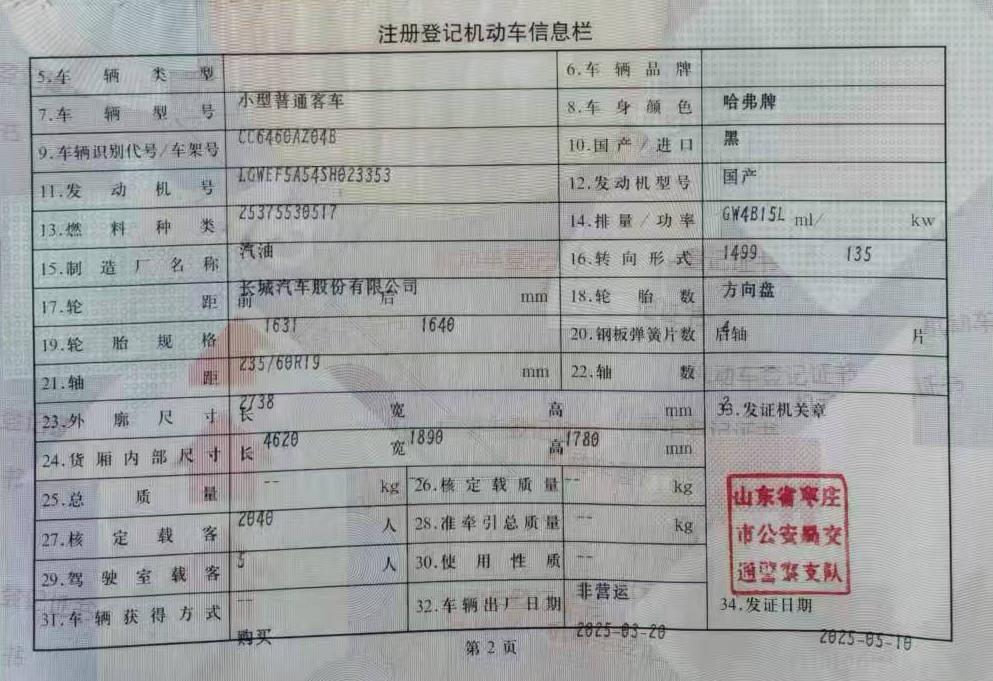 注册登记机动车信息栏
5.车辆类型 小型普通客车 6.车辆品牌 哈弗牌
7.车辆型号 CC6460AZ04B 8.车身颜色 黑
9.车辆识别代号/车架号 LGWEF5A54SH023353 10.国产/进口 国产
11.发动机号 25375530517 12.发动机型号 GW4B15L
13.燃料种类 汽油 14.排量/功率 1499 ml/ 135 kw
15.制造厂名称 长城汽车股份有限公司 16.转向形式 方向盘
17.轮距 前 1631 后 1640 mm 18.轮胎数 4
19.轮胎规格 235/60R19 20.钢板弹簧片数 后轴 片
21.轴距 2738 mm 22.轴数 2
23.外廓尺寸 长 4620 宽 1890 高 1780 mm 33.发证机关章
24.货厢内部尺寸 长 -- 宽 高 mm
25.总质量 2040 kg 26.核定载质量 -- kg
27.核定载客 5 人 28.准牵引总质量 -- kg
29.驾驶室载客 -- 人 30.使用性质 非营运
31.车辆获得方式 购买 32.车辆出厂日期 2025-03-20 34.发证日期 2025-05-10
山东省枣庄
市公安局交
通警察支队
第2页